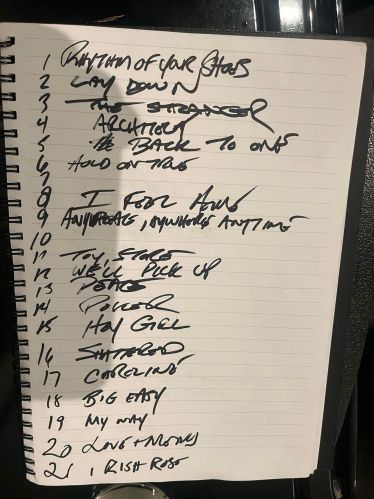 1 RHYTHM OF YOUR SHOES
2 LAY DOWN
3 THE STRANGER
4 ARCHITECT
5 BACK TO ONE
6 HOLD ON TRUE
7
8 I FEEL HOME
9 ANYPLACE, ANYWHERE ANYTIME
10
11 TOY STORE
12 WE'LL PICK UP
13 PEACE
14 POKER
15 HEY GIRL
16 SHATTERED
17 CAROLINE
18 BIG EASY
19 MY WAY
20 LOVE +
21 IRISH ROSE